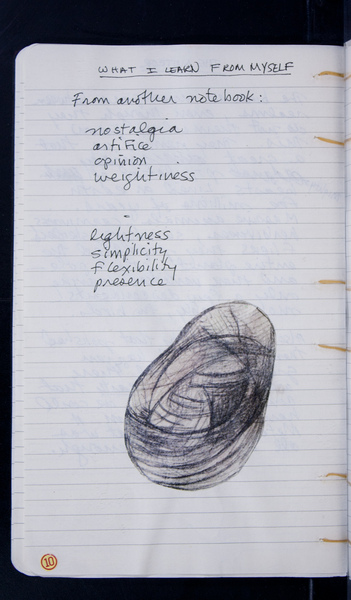 WHAT I LEARN FROM MYSELF
From another notebook:
nostalgia
artifice
opinion
weightiness
lightness
simplicity
flexibility
presence
10